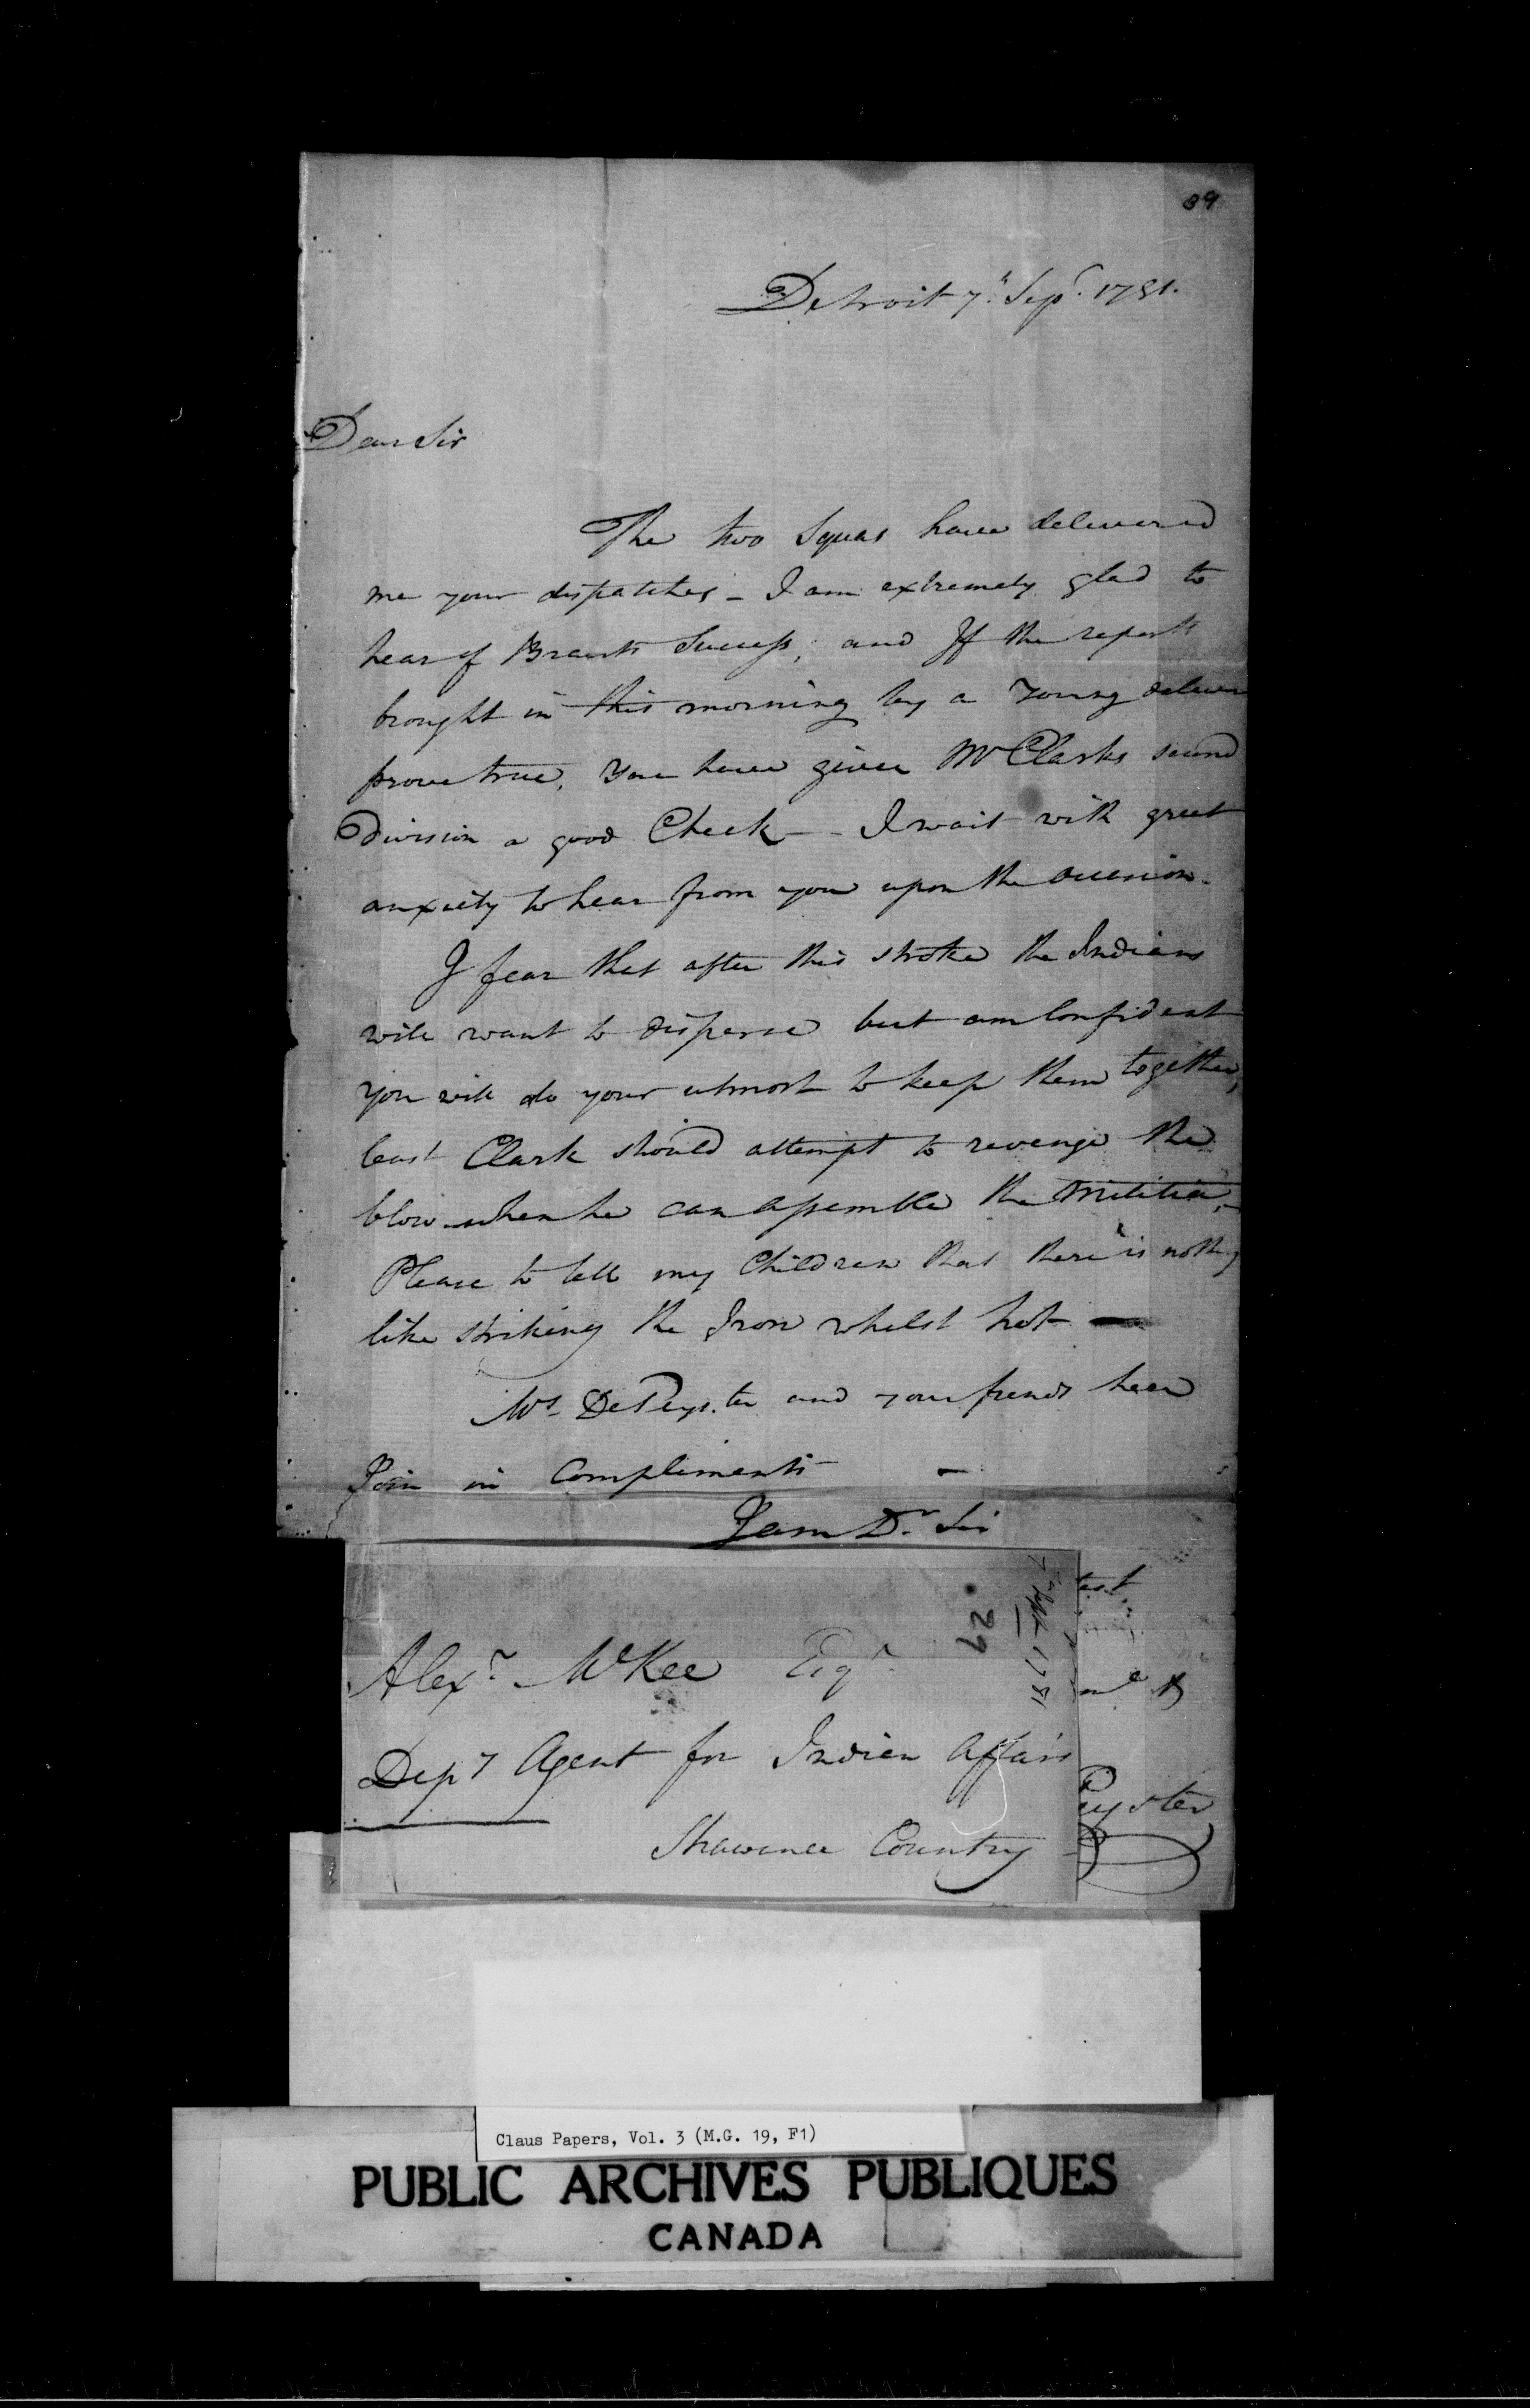 39
Detroit 7th Sepr. 1781.
Dear Sir
The two Squas have delivered
me your dispatches - I am extremely glad to
hear of Brants Success, and If the reports
brought in this morning by a Young
prove true, You have given Mr Clarks second
Division a good Check - I wait with great
anxiety to hear from you upon the occasion.
I fear that after this stroke the Indians
will want to disperse but am Confident
you will do your utmost to keep them together,
least Clark should attempt to revenge the
blow when he can assemble the Militia,-
Please to tell my Children that there is nothing
like striking the Iron whilst hot —
Mrs DePeyster and your friends here
Join in Compliments —
I am Dr. Sir
Alexr McKee Esqr
Depy Agent for Indian Affairs
Shawnee Country
29
7th Septr 1781
Peyster
Claus Papers, Vol. 3 (M.G. 19, F1)
PUBLIC ARCHIVES PUBLIQUES
CANADA